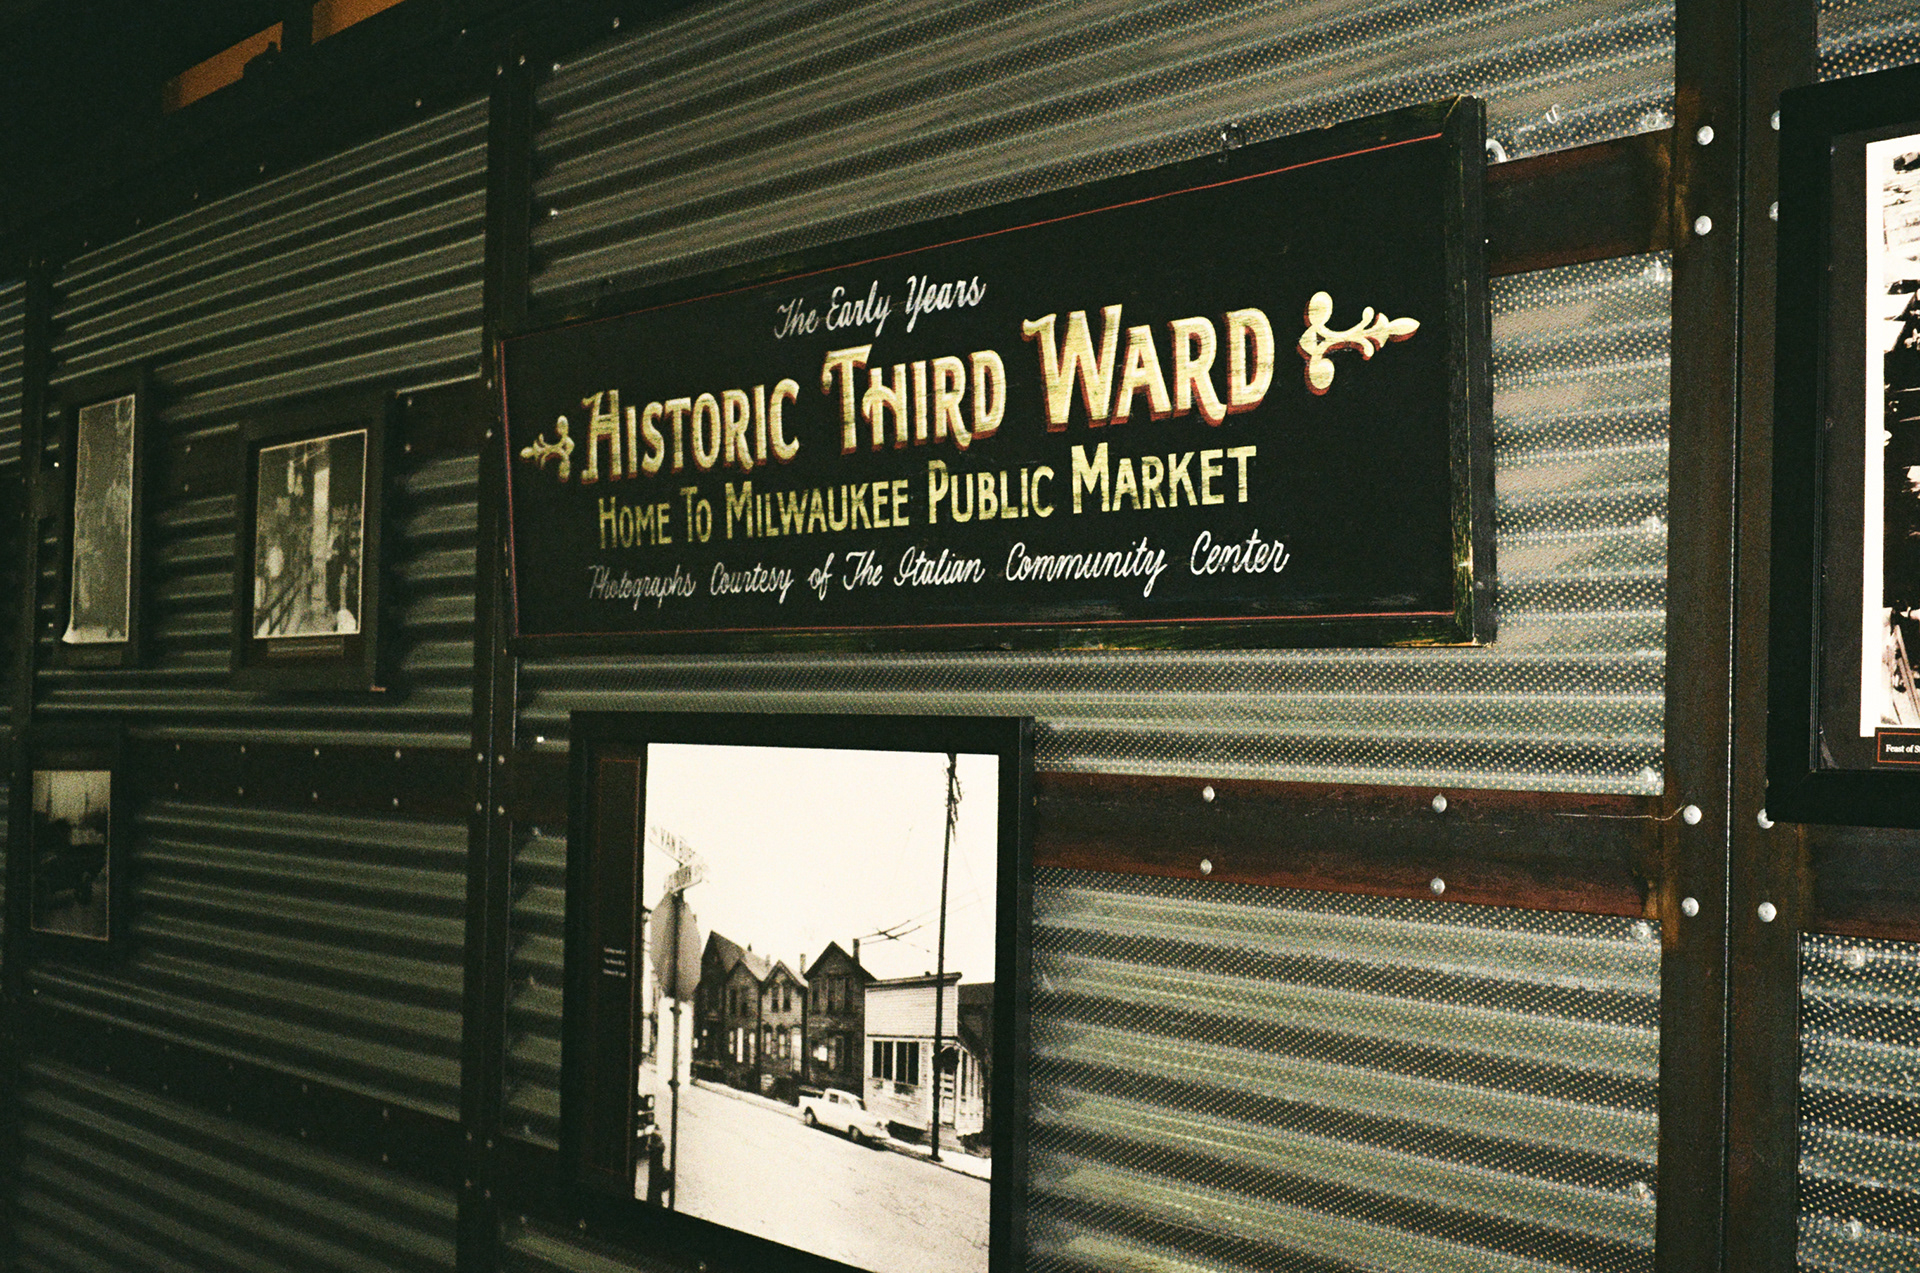 The Early Years
Historic Third Ward
Home To Milwaukee Public Market
Photographs Courtesy of The Italian Community Center
VAN
Feast of